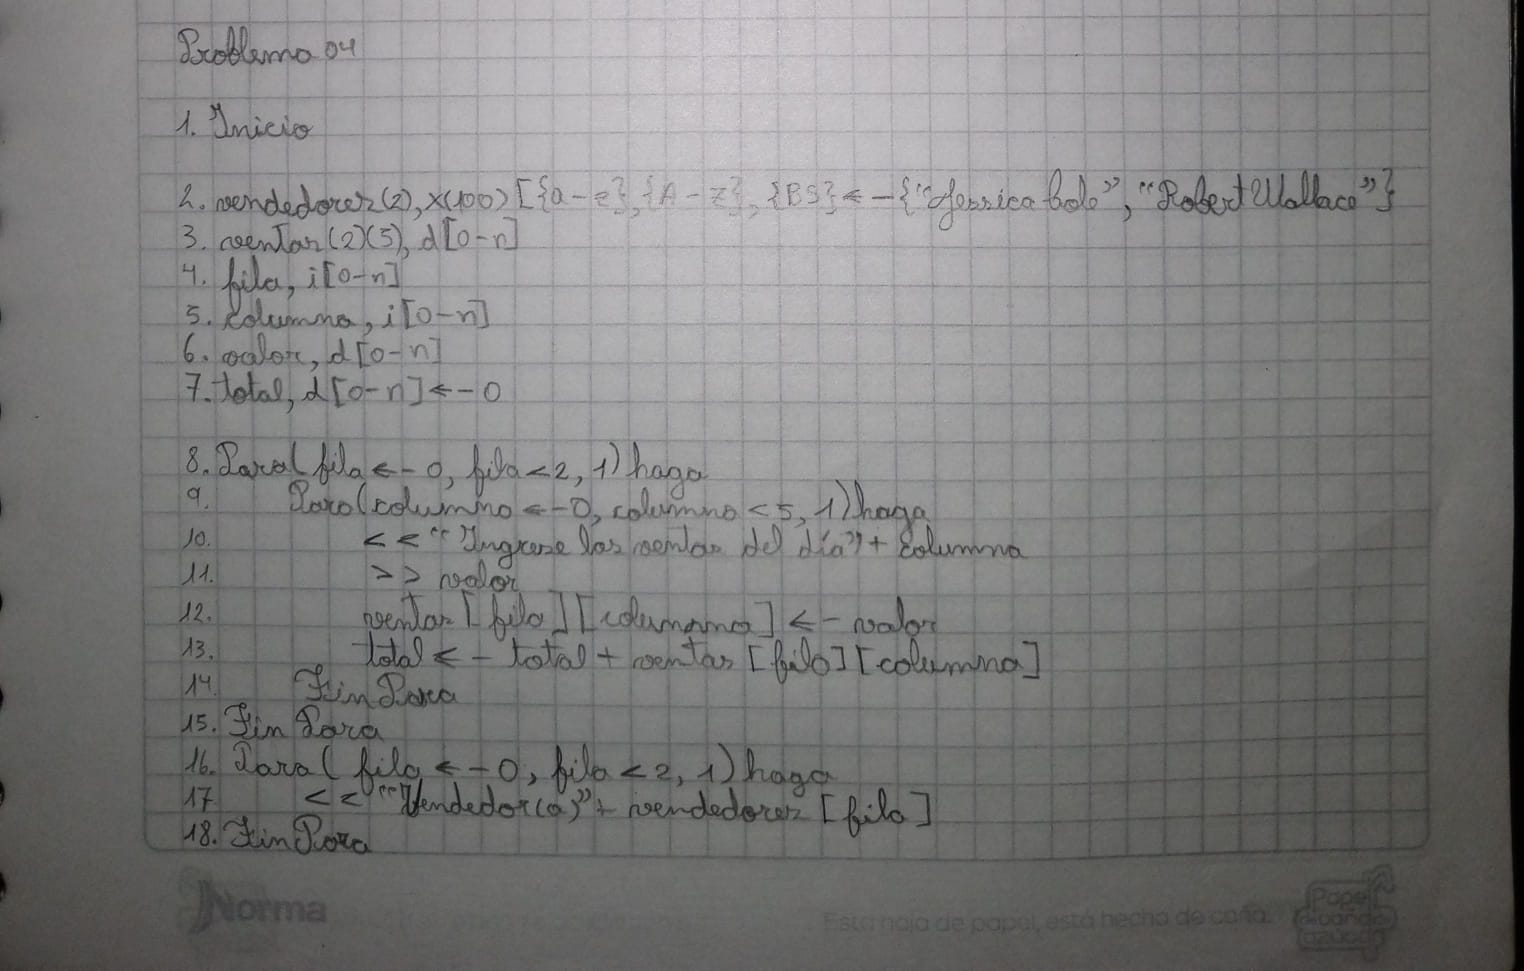 Problema 04
1. Inicio
2. vendedores(2), x(100) [{a-z},{A-Z},{BS} <-{"Jessica Cole", "Robert Wallace"}
3. ventas(2)(5), d[0-n]
4. fila, i[0-n]
5. columna, i[0-n]
6. valor, d[0-n]
7. total, d[0-n] <- 0
8. Para( fila <- 0, fila < 2, 1) haga
9. Para(columna <- 0, columna < 5, 1) haga
10. << "Ingrese las ventas del día" + columna
11. >> valor
12. ventas [fila] [columnna] <- valor
13. total <- total + ventas [fila] [columna]
14. Fin Para
15. Fin Para
16. Para( fila <- 0, fila < 2, 1) haga
17 << "Vendedor(a)" + vendedores [fila]
18. Fin Para
Norma
Esta hoja de papel, está hecha de caña.
Papel
azúcar